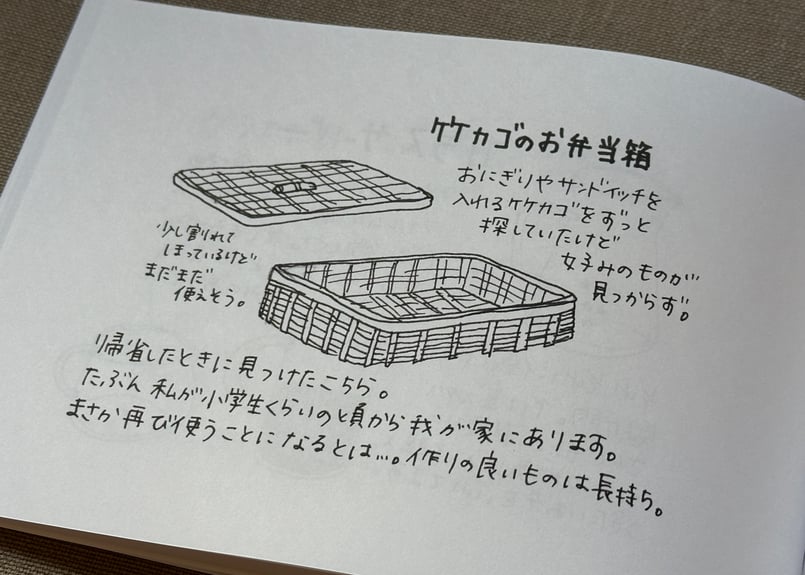 ケケカゴのお弁当箱
おにぎりやサンドイッチを
入れるケケカゴをずっと
探していたけど
女子みのものが
見つからず。
少し割れて
しまっているけど
まだまだ
使えそう。
帰省したときに見つけたこちら。
たぶん私が小学生くらいの頃から我が家にあります。
まさか再び使うことになるとは…。作りの良いものは長持ち。